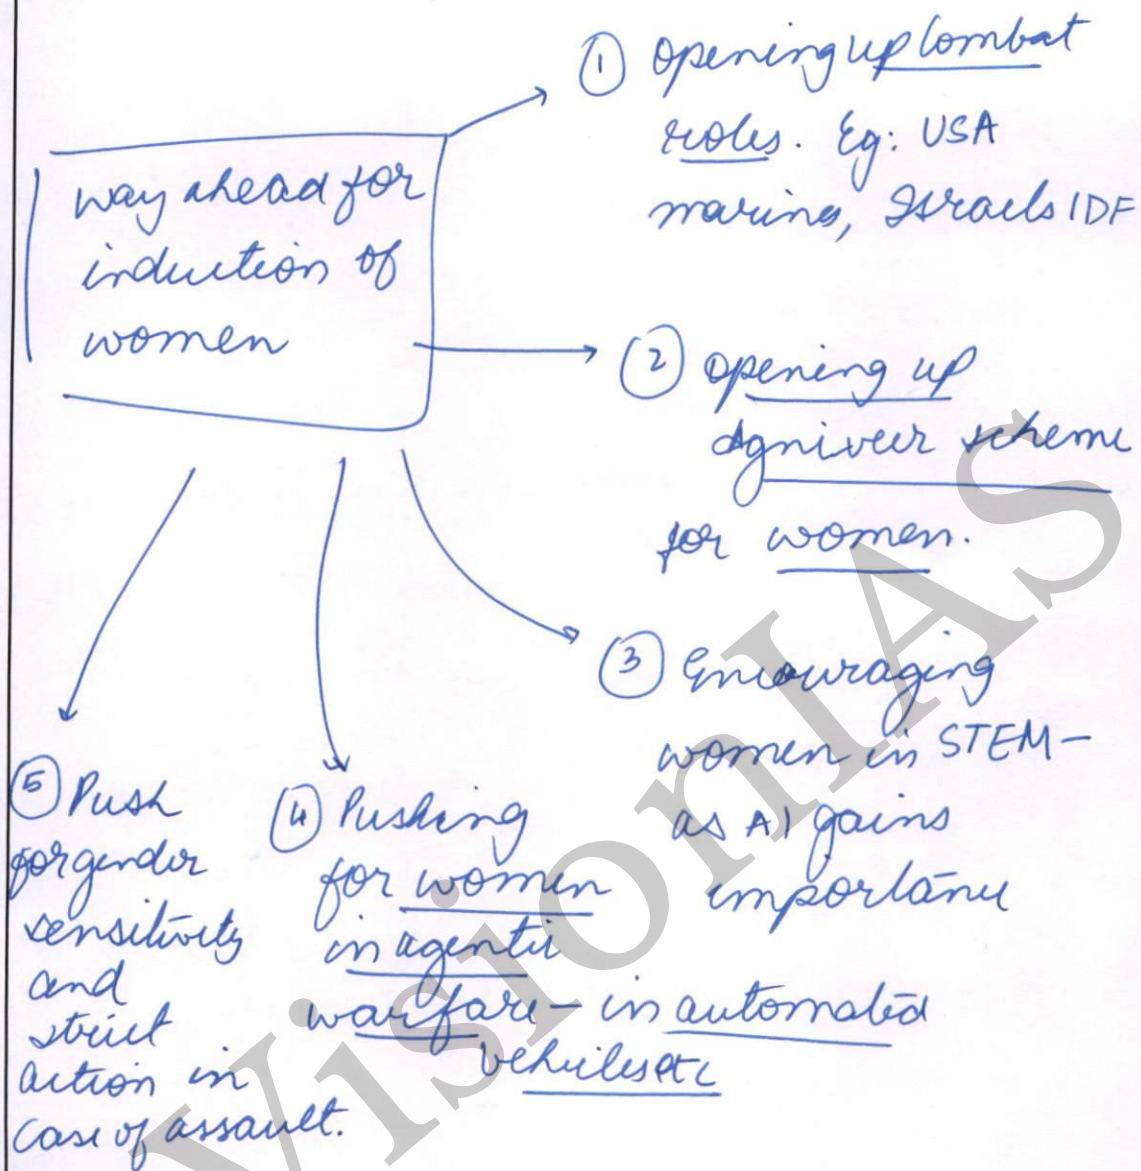 way ahead for
induction of
women
① Opening up Combat
roles. Eg: USA
marines, Israels IDF
② opening up
Agniveer scheme
for women.
③ Encouraging
women in STEM-
as AI gains
importance
④ Pushing
for women
in agentic
warfare - in automated
vehicles etc
⑤ Push
for gender
sensitivity
and
strict
action in
case of assault.
VisionIAS